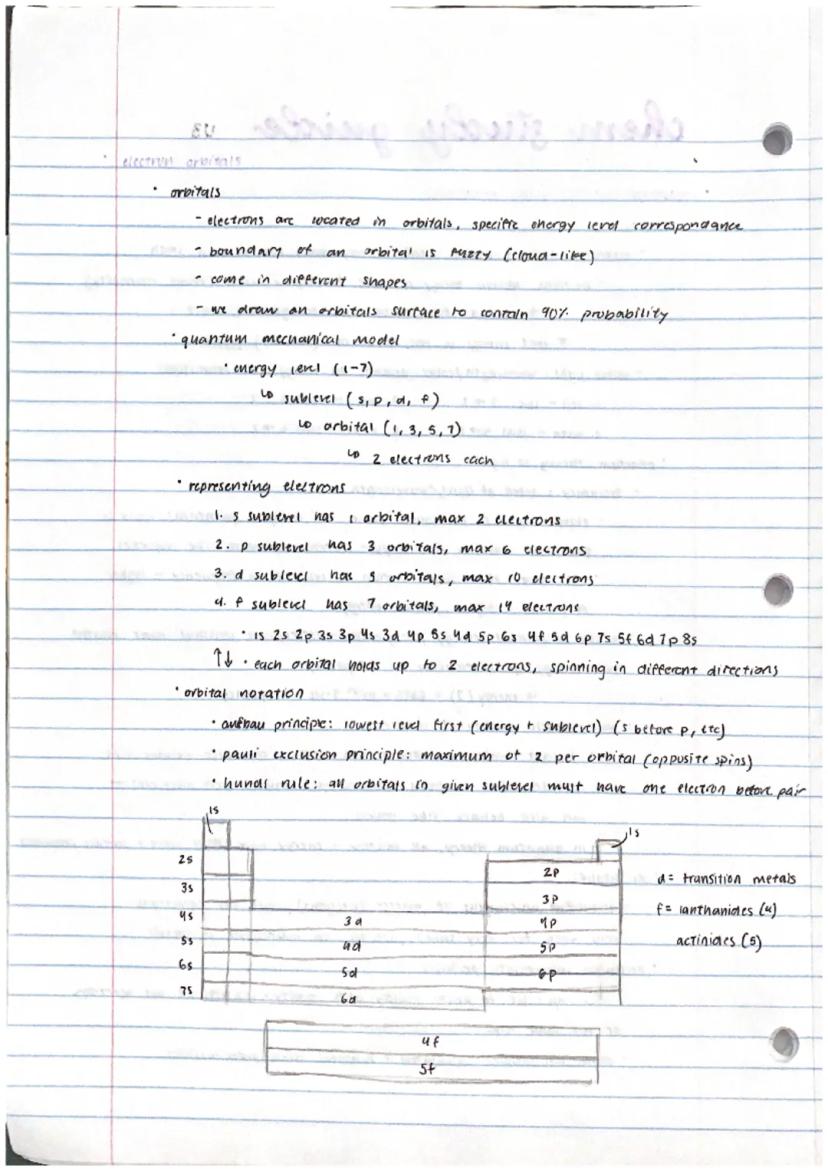 electron orbitals
• orbitals
- electrons are located in orbitals, specific energy level correspondance
- boundary of an orbital is fuzzy (cloud-like)
- come in different shapes
- we draw an orbitals surface to contain 90% probability
• quantum mechanical model
• energy level (1-7)
↳ sublevel (s, p, d, f)
↳ orbital (1, 3, 5, 7)
↳ 2 electrons each
• representing electrons
1. s sublevel has 1 orbital, max 2 electrons
2. p sublevel has 3 orbitals, max 6 electrons
3. d sublevel has 5 orbitals, max 10 electrons
4. f sublevel has 7 orbitals, max 14 electrons
• 1s 2s 2p 3s 3p 4s 3d 4p 5s 4d 5p 6s 4f 5d 6p 7s 5f 6d 7p 8s
↑↓ • each orbital holds up to 2 electrons, spinning in different directions
• orbital notation
• aufbau principle: lowest level first (energy + sublevel) (s before p, etc)
• pauli exclusion principle: maximum of 2 per orbital (opposite spins)
• hunds rule: all orbitals in given sublevel must have one electron before pair
1s 1s
2s 2p d= transition metals
3s 3p f= lanthanides (4)
4s 3d 4p
5s 4d 5p actinides (5)
6s 5d 6p
7s 6d
4f
5f